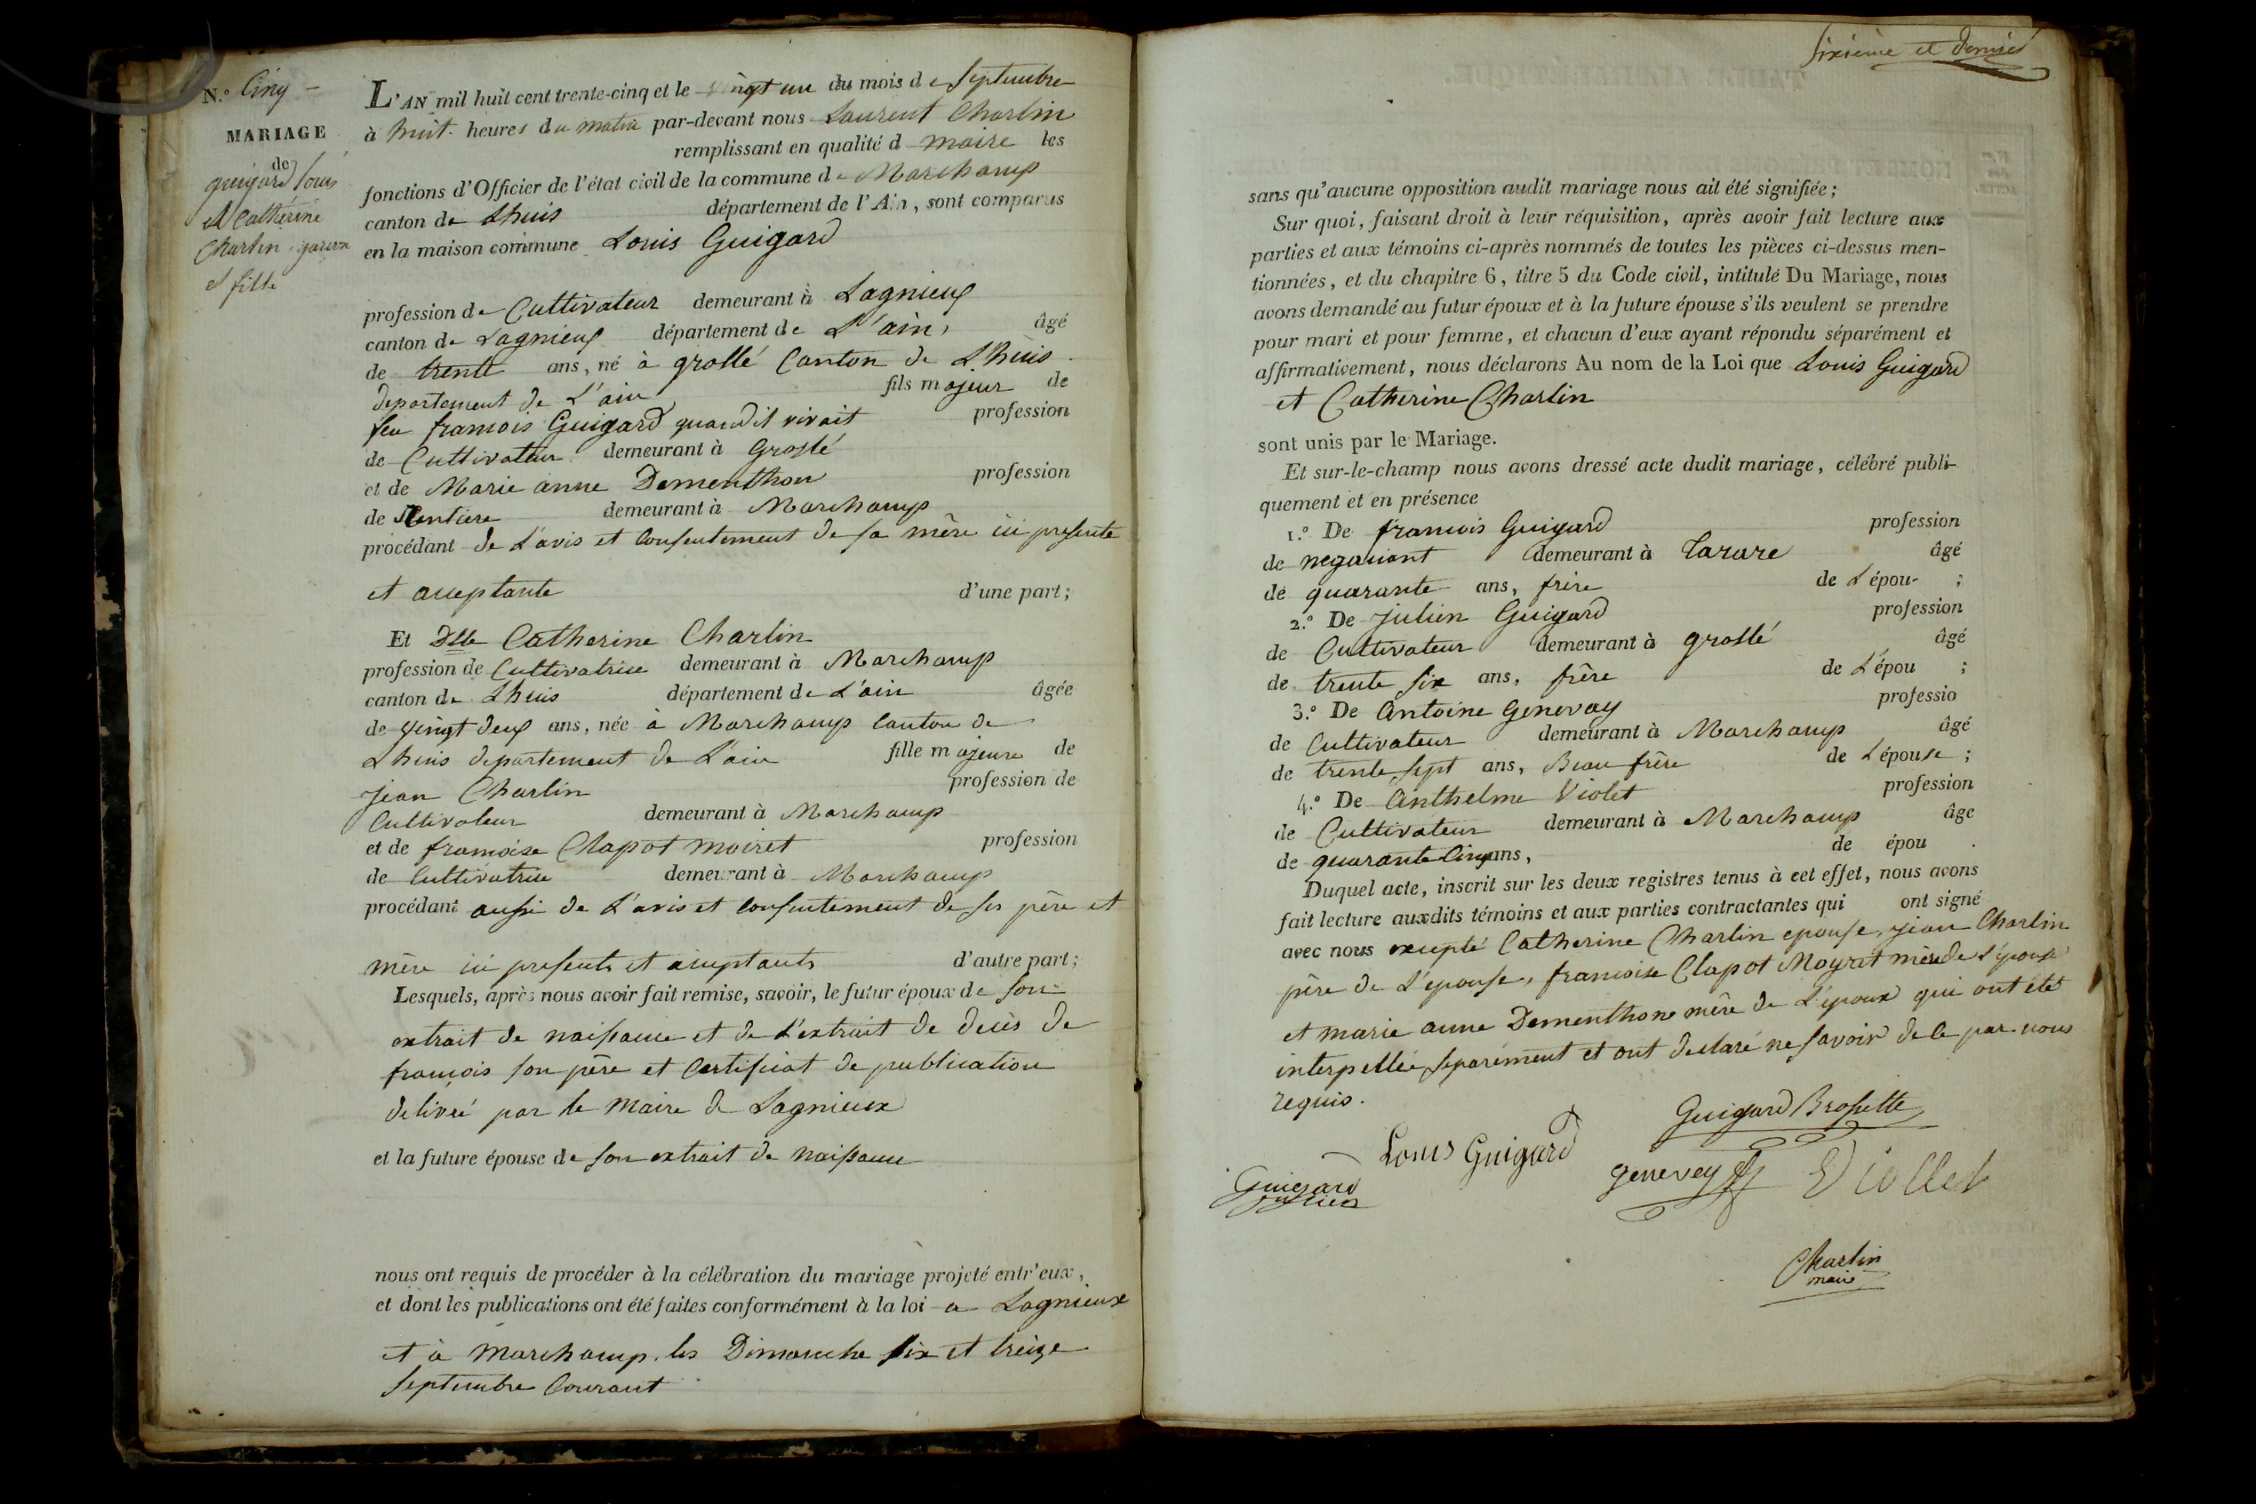 N.° Cinq –
MARIAGE
de
guigard Louis
et Catherine
Charlin garçon
et fille
L'AN mil huit cent trente-cinq et le vingt un du mois de Septembre
à huit heures du matin par-devant nous Laurent Charlin
remplissant en qualité d maire les
fonctions d'Officier de l'état civil de la commune de Marchamp
canton de Lhuis département de l'Ain, sont comparus
en la maison commune Louis Guigard
profession de Cultivateur demeurant à Lagnieux
canton de Lagnieux département de L'ain, âgé
de trente ans, né à grollé Canton de Lhuis
departement de L'ain fils majeur de
feu francois Guigard quand il vivait profession
de Cultivateur demeurant à Grollé
et de Marie anne Dementhon profession
de Rentiere demeurant à Marchamp
procédant de L'avis et Consentement de sa mère ici presente
et acceptante d'une part;
Et Dlle Catherine Charlin
profession de Cultivatrice demeurant à Marchamp
canton de Lhuis département de L'ain âgée
de vingt deux ans, née à Marchamp Canton de
Lhuis departement de L'ain fille majeure de
jean Charlin profession de
Cultivateur demeurant à Marchamp
et de francoise Clapot moiret profession
de Cultivatrice demeurant à Marchamp
procédant aussi de L'avis et Consentement de ses père et
mère ici presents et acceptants d'autre part;
Lesquels, après nous avoir fait remise, savoir, le futur époux de son
extrait de naissance et de L'extrait de decès de
françois son père et Certificat de publication
delivré par le Maire de Lagnieux
et la future épouse de son extrait de naissance
nous ont requis de procéder à la célébration du mariage projeté entr'eux,
et dont les publications ont été faites conformément à la loi a Lagnieux
et à Marchamp. les Dimanche six et treize
Septembre Courant
sixième et dernier
sans qu'aucune opposition audit mariage nous ait été signifiée;
Sur quoi, faisant droit à leur réquisition, après avoir fait lecture aux
parties et aux témoins ci-après nommés de toutes les pièces ci-dessus men-
tionnées, et du chapitre 6, titre 5 du Code civil, intitulé Du Mariage, nous
avons demandé au futur époux et à la future épouse s'ils veulent se prendre
pour mari et pour femme, et chacun d'eux ayant répondu séparément et
affirmativement, nous déclarons Au nom de la Loi que Louis Guigard
et Catherine Charlin
sont unis par le Mariage.
Et sur-le-champ nous avons dressé acte dudit mariage, célébré publi-
quement et en présence
1.° De francois Guigard profession
de negociant demeurant à Tarare âgé
de quarante ans, frère de L'épou- ;
2.° De julien Guigard profession
de Cultivateur demeurant à grollé âgé
de trente six ans, frère de L'épou ;
3.° De Antoine Genevay professio
de Cultivateur demeurant à Marchamp âgé
de trente sept ans, Beau frère de L'épouse ;
4.° De Anthelme Violet profession
de Cultivateur demeurant à Marchamp âge
de quarante Cinq ans, de épou .
Duquel acte, inscrit sur les deux registres tenus à cet effet, nous avons
fait lecture auxdits témoins et aux parties contractantes qui ont signé
avec nous excepté Catherine Charlin epouse, jean Charlin
père de L'epouse, francoise Clapot Moyrat mère de L'épouse
et marie anne Dementhone mère de L'époux qui ont été
interpellée séparément et ont declaré ne savoir de ce par nous
requis.
Guigard Brossette
Louis Guigard
Guigard
julien
genevey
Viollet
Charlin
maire